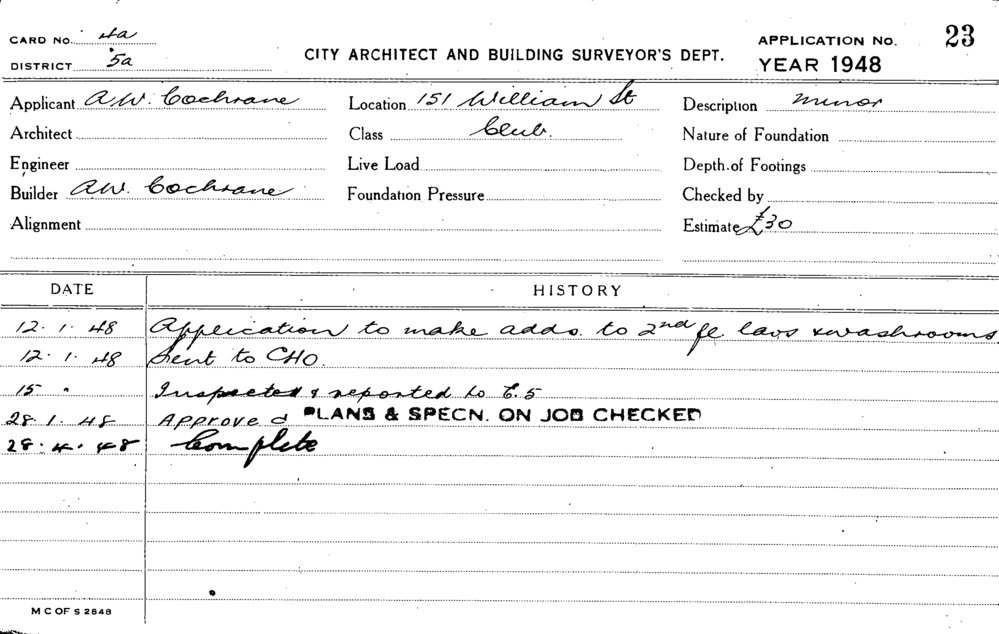 CARD NO. 4a
DISTRICT 5a
CITY ARCHITECT AND BUILDING SURVEYOR'S DEPT.
APPLICATION NO. 23
YEAR 1948
Applicant A.W. Cochrane Location 151 William St Description minor
Architect Class Club. Nature of Foundation
Engineer Live Load Depth of Footings
Builder A.W. Cochrane Foundation Pressure Checked by
Alignment Estimate £30
DATE HISTORY
12.1.48 Application to make adds. to 2nd fl lavs & washrooms.
12.1.48 Sent to CHO.
15 " Inspected & reported to E.5
28.1.48 Approved PLANS & SPECN. ON JOB CHECKED
28.4.48 Complete
M C OF S 2848